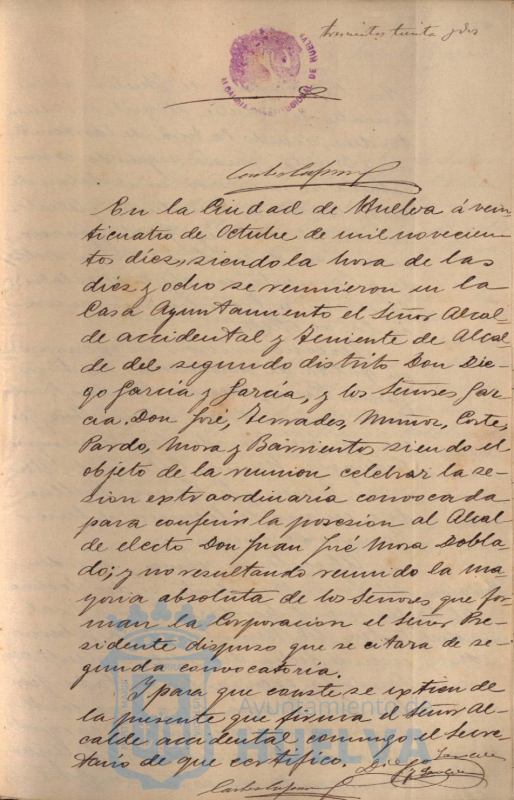 trescientos treinta y dos
ALCALDIA CONSTITUCIONAL DE HUELVA
En la Ciudad de Huelva á vein
ticuatro de Octubre de mil novecien
tos diez, siendo la hora de las
diez y ocho se reunieron en la
Casa Ayuntamiento el Señor Alcal-
de accidental y Teniente de Alcal-
de del segundo distrito Don Die-
go García y García, y los Señores Gar-
cia, Don José, Terrades, Muñoz, Corte,
Pardo, Mora y Barriento, siendo el
objeto de la reunion celebrar la se-
sion extraordinaria convocada
para conferir la posesion al Alcal
de electo Don Juan José Mora Dobla-
do; y no resultando reunido la ma-
yoria absoluta de los Señores que for-
man la Corporacion el Señor Pre-
sidente dispuso que se citara de se-
gunda convocatoria.
Y para que conste se extien de
la presente que firma el Señor Al-
calde accidental conmigo el Secre-
tario de que certifico.
Diego Garcia
y Garcia
Ayuntamiento de
HUELVA